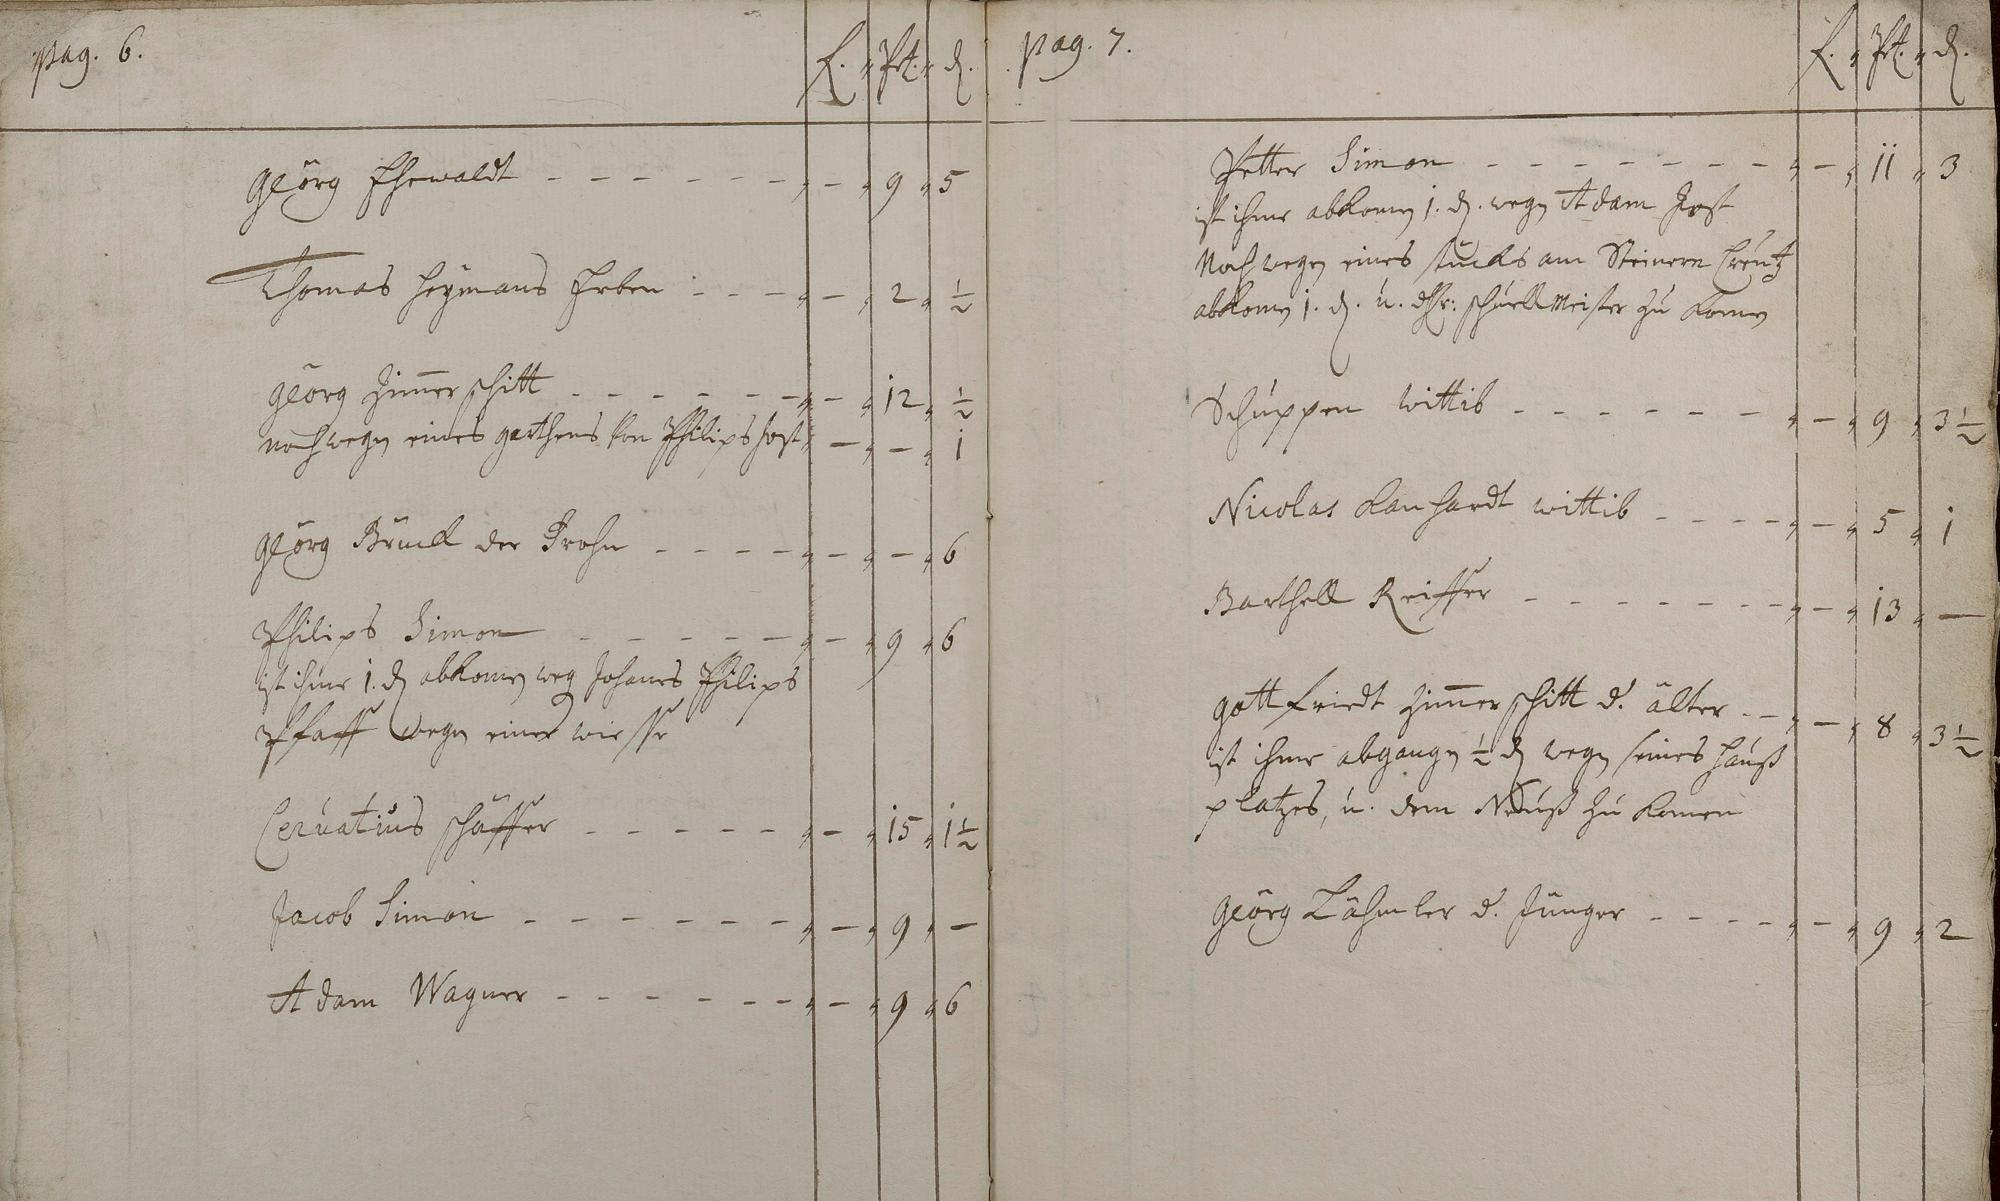 pag. 6.
f. " Pt. " d.
Geörg Ehewaldt - - - - - - " - " 9 " 5
Thomas Heymans Erben - - - " - " 2 " ½
Geörg Zim̄erschitt - - - - - - " - " 12 " ½
noch wegn eines garthens von Philips Jost " - " - " 1
Geörg Brück der Frohn - - - - " - " - " 6
Philips Simon - - - - - " - " 9 " 6
ist ihme 1. d abkomn weg Johanes Philips
Pfaff wegn einer wiesse
Cervatius Schäffer - - - - - " - " 15 " 1½
Jacob Simon - - - - - - " - " 9 " -
Adam Wagner - - - - - - " - " 9 " 6
pag. 7.
f. " Pt. " d.
Petter Simon - - - - - - - " - " 11 " 3
ist ihme abkomn 1. d. wegn Adam Jost
Noch wegen eines stucks am Steinern Creutz
abkomn 1. d. u. Schuell Meister zu komn
Schuppen wittib - - - - - - " - " 9 " 3½
Nicolas Lanhardt wittib - - - - " - " 5 " 1
Barthell Reiffer - - - - - - - " - " 13 " -
Gottfriedt Zim̄erschitt d. älter - - " - " 8 " 3½
ist ihme abgangn ½ d wegn seines Hauß
platzes, u. dem zu komen
Geörg Lähmler d. Jünger - - - - " - " 9 " 2